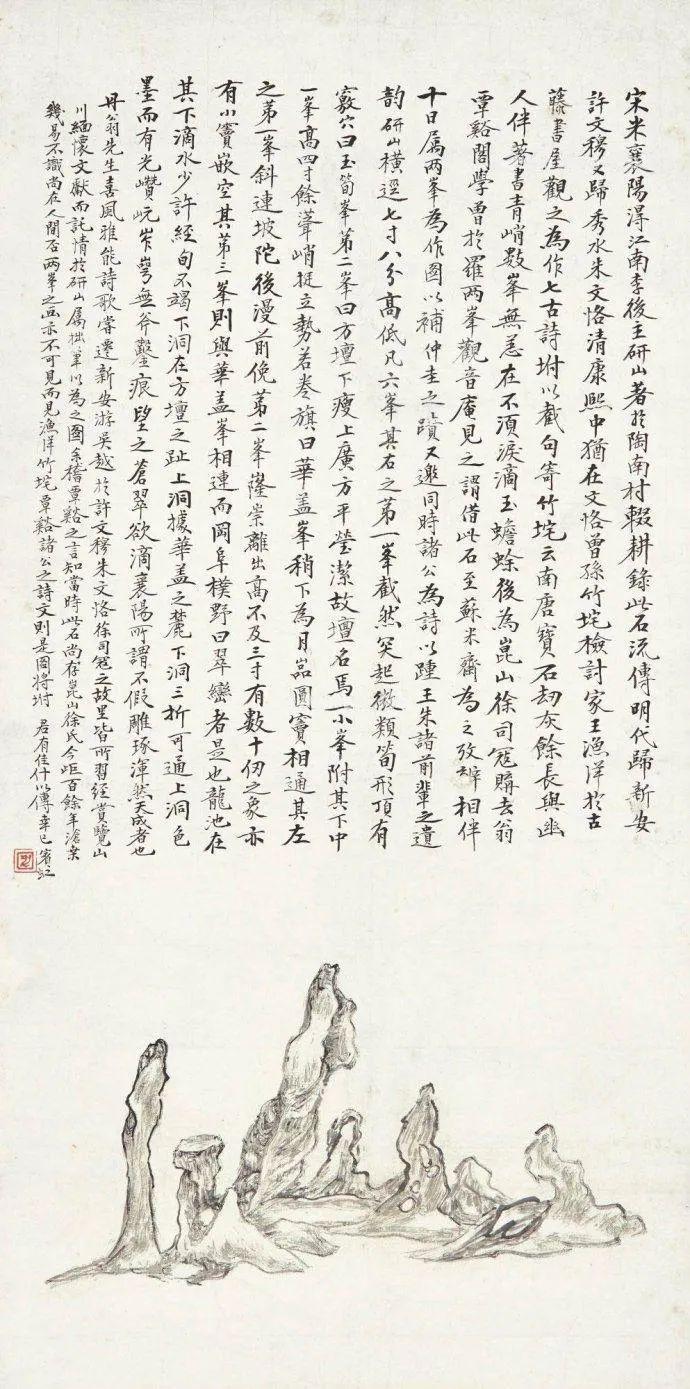 宋米襄陽得江南李後主研山著於陶南村輟耕錄此石流傳明代歸新安
許文穆又歸秀水朱文恪清康熙中猶在文恪曾孫竹垞檢討家王漁洋於古
藤書屋觀之為作七古詩坿以截句寄竹垞云南唐寶石劫灰餘長與幽
人伴著書青峭數峯無恙在不須淚滴玉蟾蜍後為崑山徐司寇購去翁
覃谿閣學曾於羅兩峯觀音庵見之謂借此石至蘇米齋為之攷辯相伴
十日屬兩峯為作圖以補仲圭之蹟又邀同時諸公為詩以踵王朱諸前輩之遺
韵研山橫逕七寸八分高低凡六峯其右之第一峯截然突起微類筍形頂有
竅穴曰玉筍峯第二峯曰方壇下瘦上廣方平瑩潔故壇名焉一小峯附其下中
一峯高四寸餘聳峭挺立勢若卷旗曰華盖峯稍下為月嵒圓竇相通其左
之第一峯斜連坡陀後漫前俛第二峯隆崇離出高不及三寸有數十仞之象亦
有小竇嵌空其第三峯則與華盖峯相連而岡阜樸野曰翠巒者是也龍池在
其下滴水少許經旬不竭下洞在方壇之趾上洞據華盖之麓下洞三折可通上洞色
墨而有光巑岏岝崿無斧鑿痕望之蒼翠欲滴襄陽所謂不假雕琢渾然天成者也
丹翁先生喜風雅能詩歌嘗遷新安游吳越於許文穆朱文恪徐司寇之故里皆所習經賞覽山
川緬懷文獻而託情於研山屬拙筆以為之圖余稽覃谿之言知當時此石尚存崑山徐氏今距百餘年滄桑
幾易不識尚在人間否兩峯之畫亦不可見而見漁洋竹垞覃谿諸公之詩文則是圖將坿 君有佳什以傳辛巳賓虹